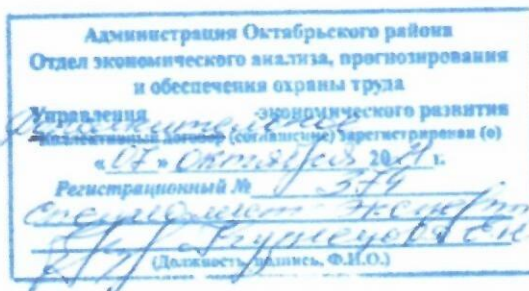 Администрация Октябрьского района
Отдел экономического анализа, прогнозирования
и обеспечения охраны труда
Управления экономического развития
Коллективный договор (соглашение) зарегистрирован (о)
«07» октября 2021 г.
Регистрационный № 374
специалист-эксперт
Кузнецова Е.Н
(Должность, подпись, Ф.И.О.)